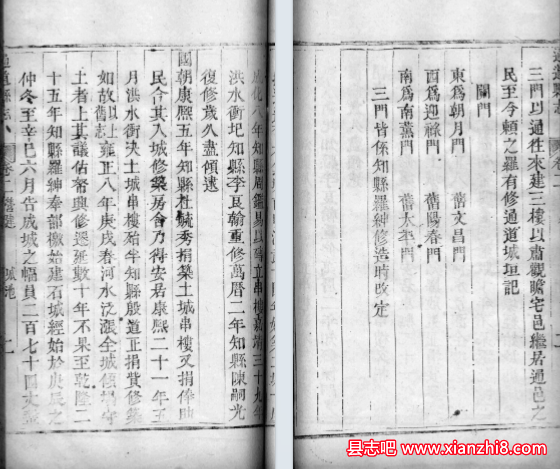 三門以通往來建三樓以肅觀瞻宅邑繼居通邑之
民至今頼之羅有修通道城垣記
關門
東爲朝月門 舊文昌門
西爲迎祿門 舊陽春門
南爲南薰門 舊太平門
三門皆係知縣羅紳修造時改定
成化八年知縣周鑑易以
立串樓嘉靖三十九年
洪水衝圮知縣李良翰重修萬曆二年知縣陳嗣光
復修歲久盡傾逃
國朝康熙五年知縣杜毓秀捐築土城串樓又捐俸助
民合其入城修築房舍乃得安居康熙二十一年五
月洪水衝決土城串樓殆半知縣殷道正捐貲修築
如故雍正八年庚戌春河水泛漲全城傾
土者上其議佔帑興修遷延數十年不果至乾隆二
十五年知縣羅紳奉部檄始建石城經始於庚辰之
仲冬至辛巳六月告成城之幅員二百七十四丈
通道縣志 卷二 城池
县志吧 www.xianzhi8.com